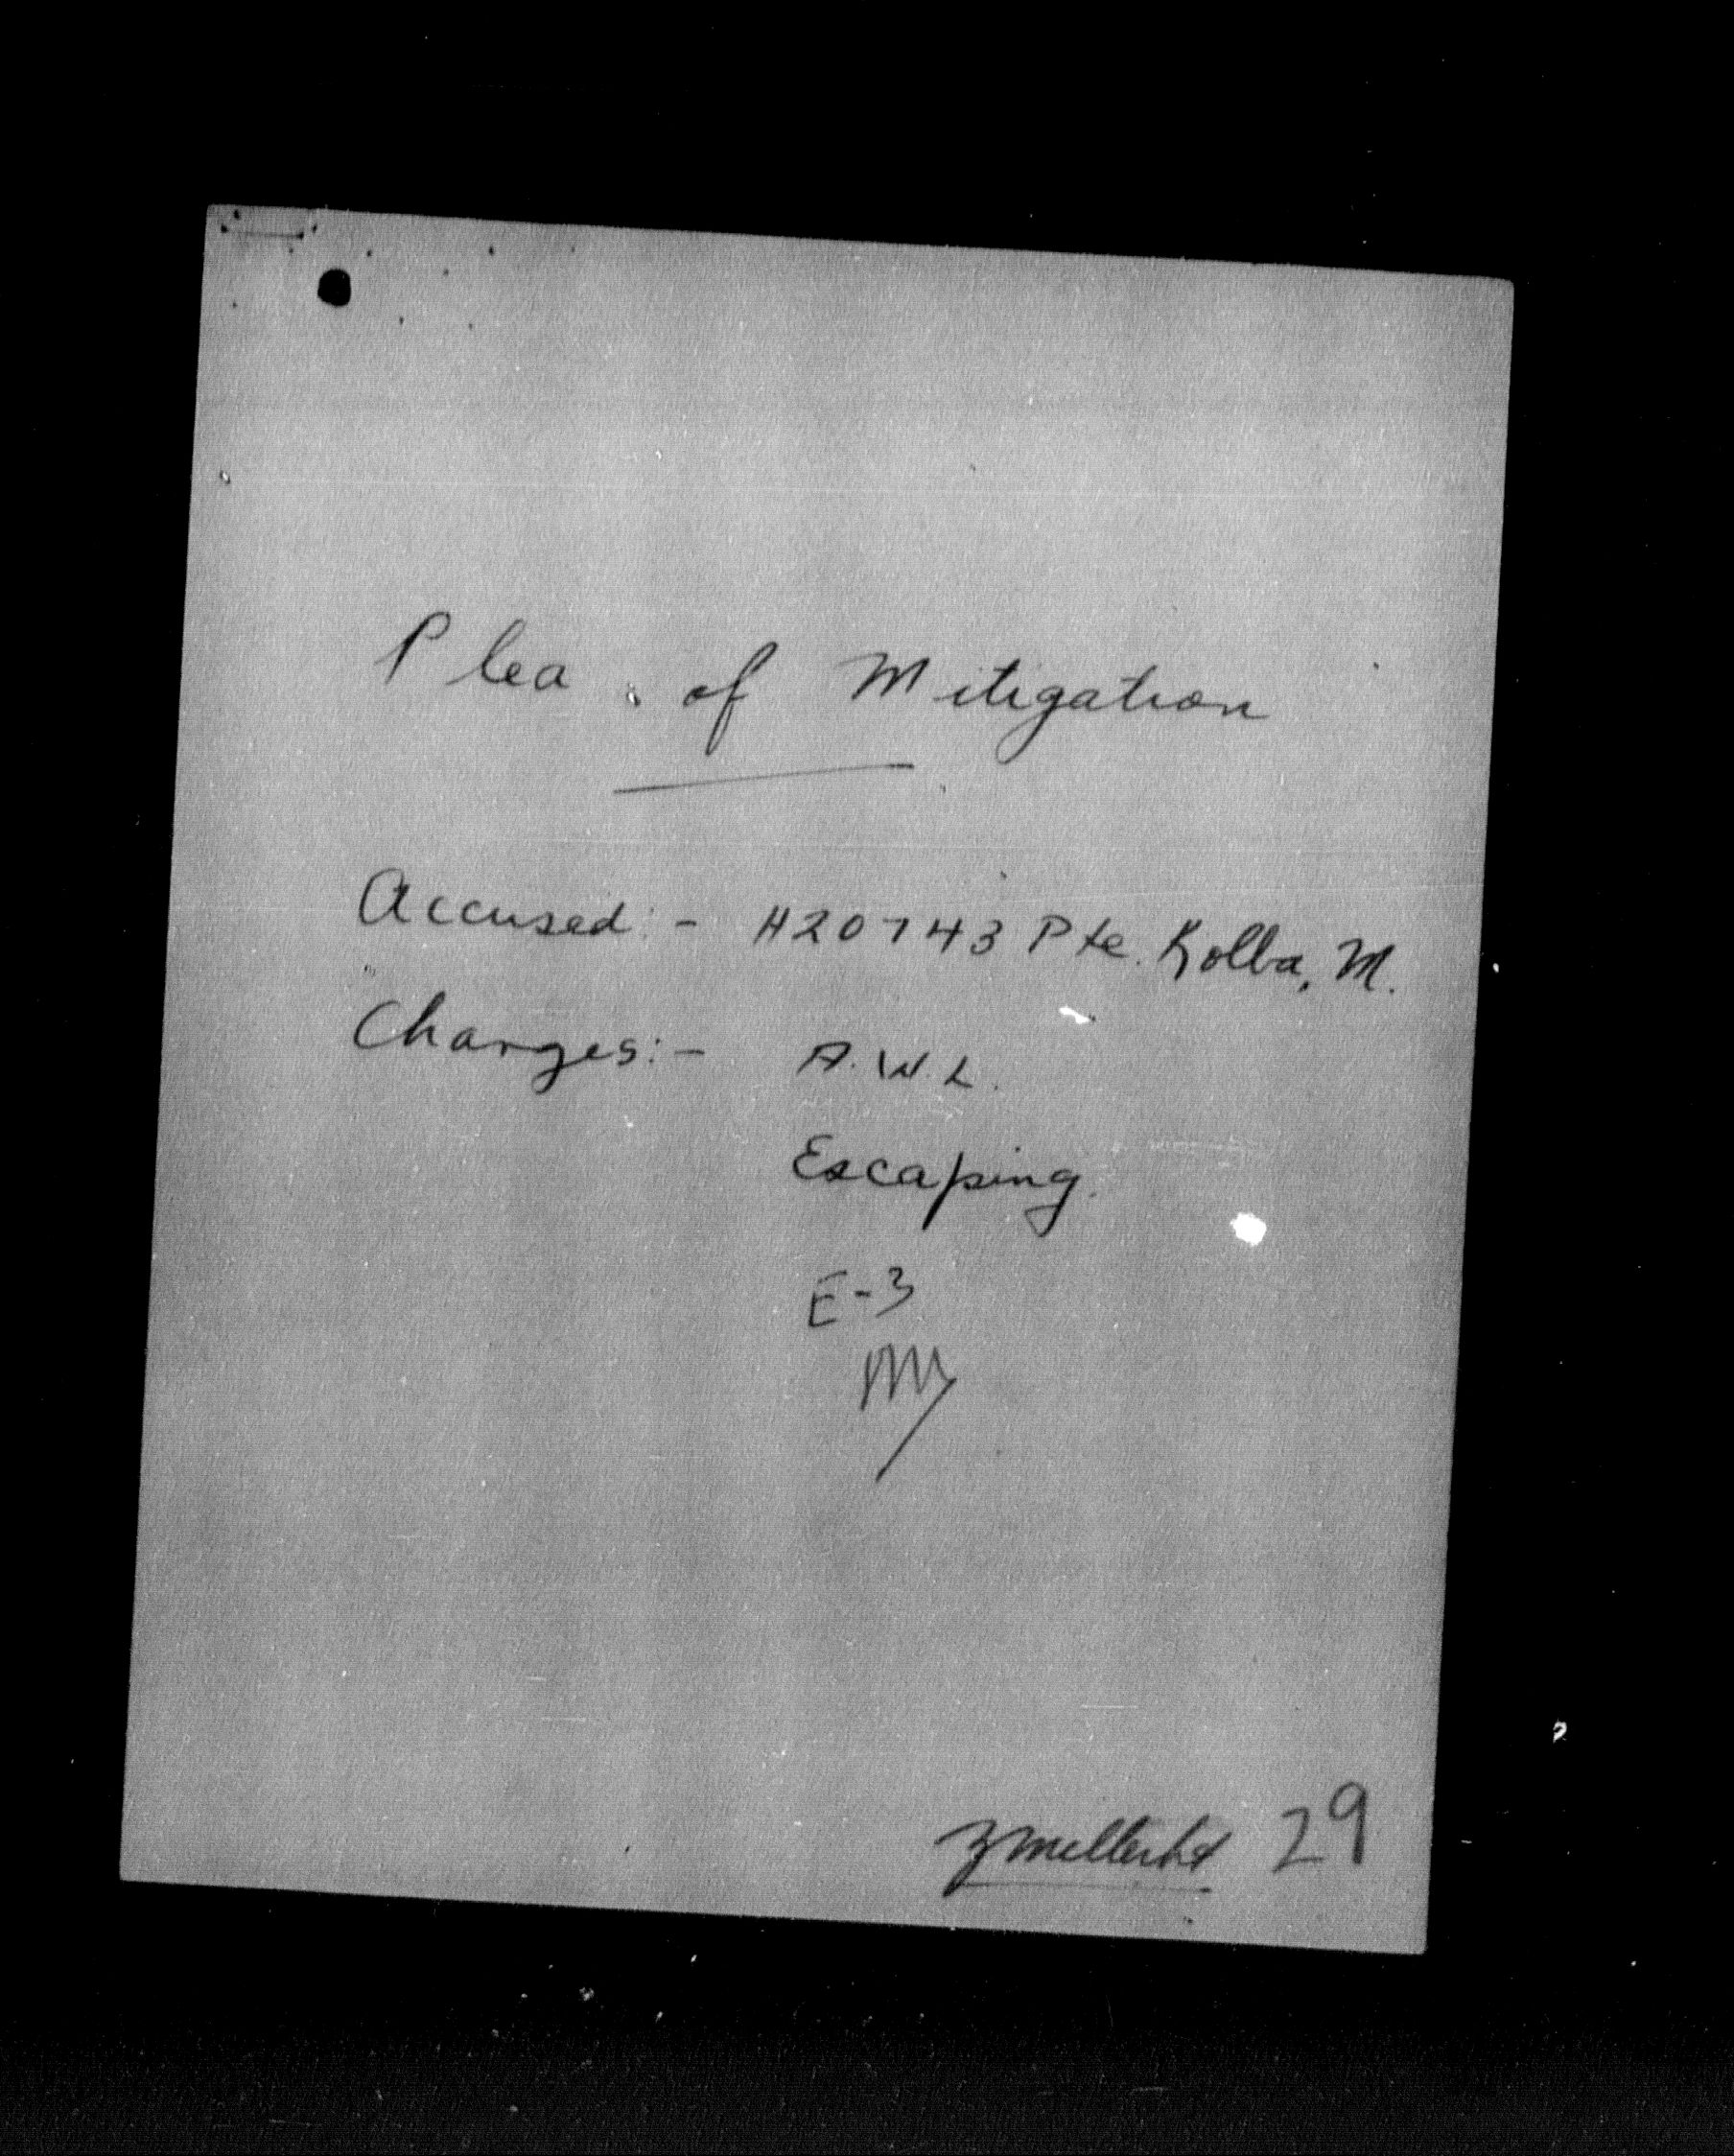 Plea of Mitigation
Accused:- H20743 Pte. Kolba, M.
Charges:- A.W.L.
Escaping.
E-3
29